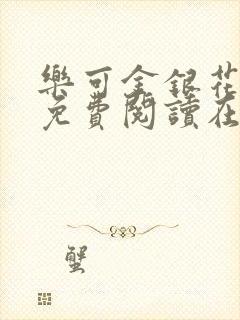 樂可金銀花
免費閱讀在
蟹